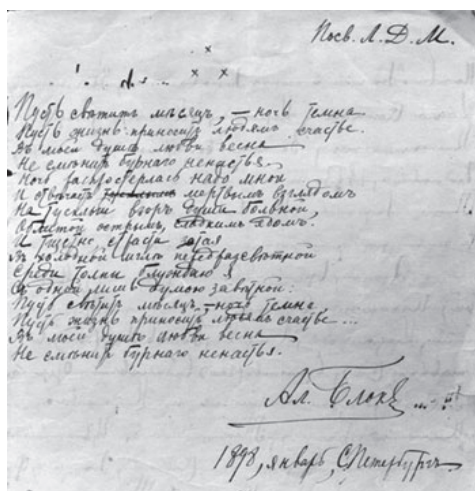 Посв. Л. Д. М.
Пусть свѣтитъ мѣсяцъ, — ночь темна
Пусть жизнь приноситъ людямъ счастье.
Въ моей душѣ любви весна
Не смѣнитъ бурнаго ненастья.
Ночь распростерлась надо мной
И отвѣчаетъ мертвымъ взглядомъ
На тусклый взоръ души больной,
Облитой острымъ, сладкимъ ядомъ.
И тщетно, страсти затая
Въ холодной мглѣ передразсвѣтной
Среди толпы блуждаю я
Съ одной лишь думою завѣтной:
Пусть свѣтитъ мѣсяцъ, — ночь темна
Пусть жизнь приноситъ людямъ счастье...
Въ моей душѣ любви весна
Не смѣнитъ бурнаго ненастья.
Ал. Блокъ
1898, январь, С.Петербургъ.